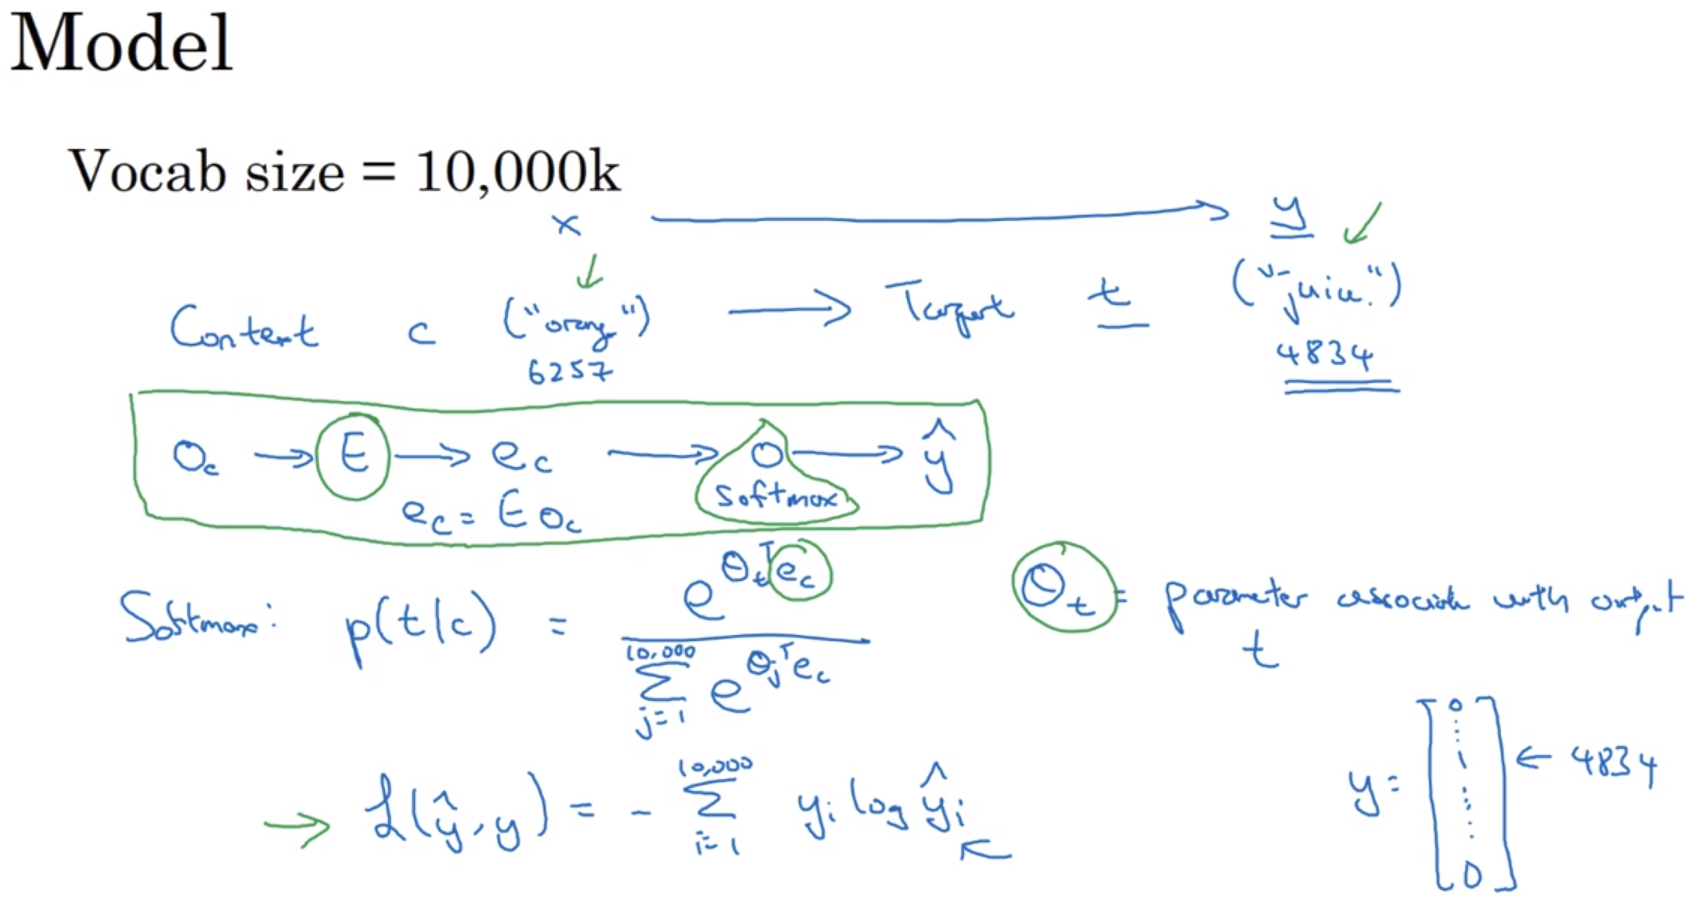 Model
Vocab size = 10,000k
x → y
Context c ("orange") → Target t ("juice")
6257 4834
O_c → E → e_c → o → ŷ
softmax
e_c = E O_c
Softmax: p(t|c) = e^{θ_t^T e_c} / Σ_{j=1}^{10,000} e^{θ_j^T e_c}
θ_t = parameter associated with output t
L(ŷ, y) = - Σ_{i=1}^{10,000} y_i log ŷ_i
y = [0 ⋮ 1 ⋮ 0] ← 4834